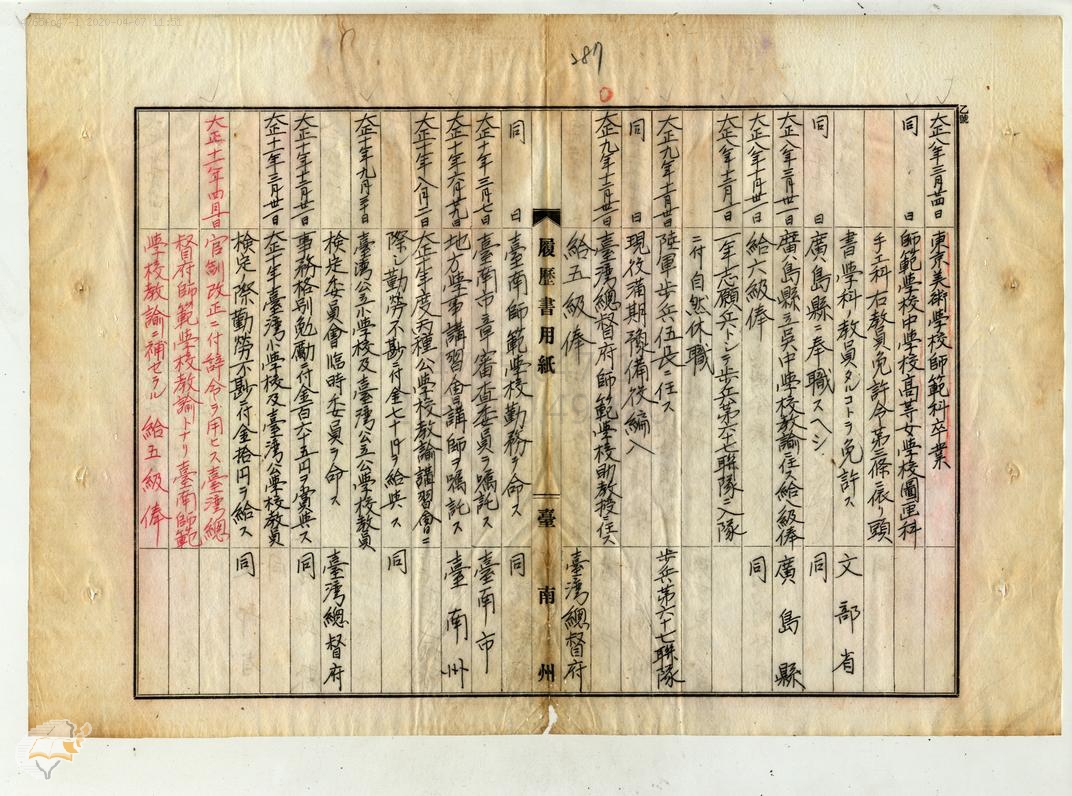 287
乙號
大正八年三月廿四日 東京美術學校師範科卒業
同 日 師範學校中學校高等女學校圖画科
手工科右教員免許令第三條ニ依リ頭
書學科ノ教員タルコトヲ免許ス 文部省
同 日 廣島縣ニ奉職スヘシ 同
大正八年三月卅一日 廣島縣立呉中學校教諭ニ任ス給八級俸 廣島縣
大正八年十月卅一日 給六級俸 同
大正八年十二月一日 一年志願兵トシテ歩兵第六十七聯隊ニ入隊
ニ付自然休職
大正九年十一月卅日 陸軍歩兵伍長ニ任ス 歩兵第六十七聯隊
同 日 現役満期豫備役編入
大正九年十二月廿一日 臺灣總督府師範學校助教授ニ任ス
給五級俸 臺灣總督府
履歷書用紙 臺南州
同 日 臺南師範學校勤務ヲ命ス 同
大正十年三月七日 臺南市章審査委員ヲ囑託ス 臺南市
大正十年六月廿九日 地方學事講習會講師ヲ囑託ス 臺南州
大正十年八月二日 大正十年度丙種公學校教諭講習會ニ
際シ勤勞不尠ニ付金七十円ヲ給與ス 同
大正十年九月三十日 臺灣公立小學校及臺灣公立公學校教員
檢定委員會臨時委員ヲ命ス 臺灣總督府
大正十年十二月廿一日 事務格別勉勵ニ付金百六十五円ヲ賞與ス 同
大正十一年三月卅一日 大正十年臺灣小學校及臺灣公學校教員
檢定ノ際勤勞不尠付金拾円ヲ給ス 同
大正十一年四月一日 官制改正ニ付辭令ヲ用ヒス臺灣總
督府師範學校教諭トナリ臺南師範
學校教諭ニ補セラル 給五級俸